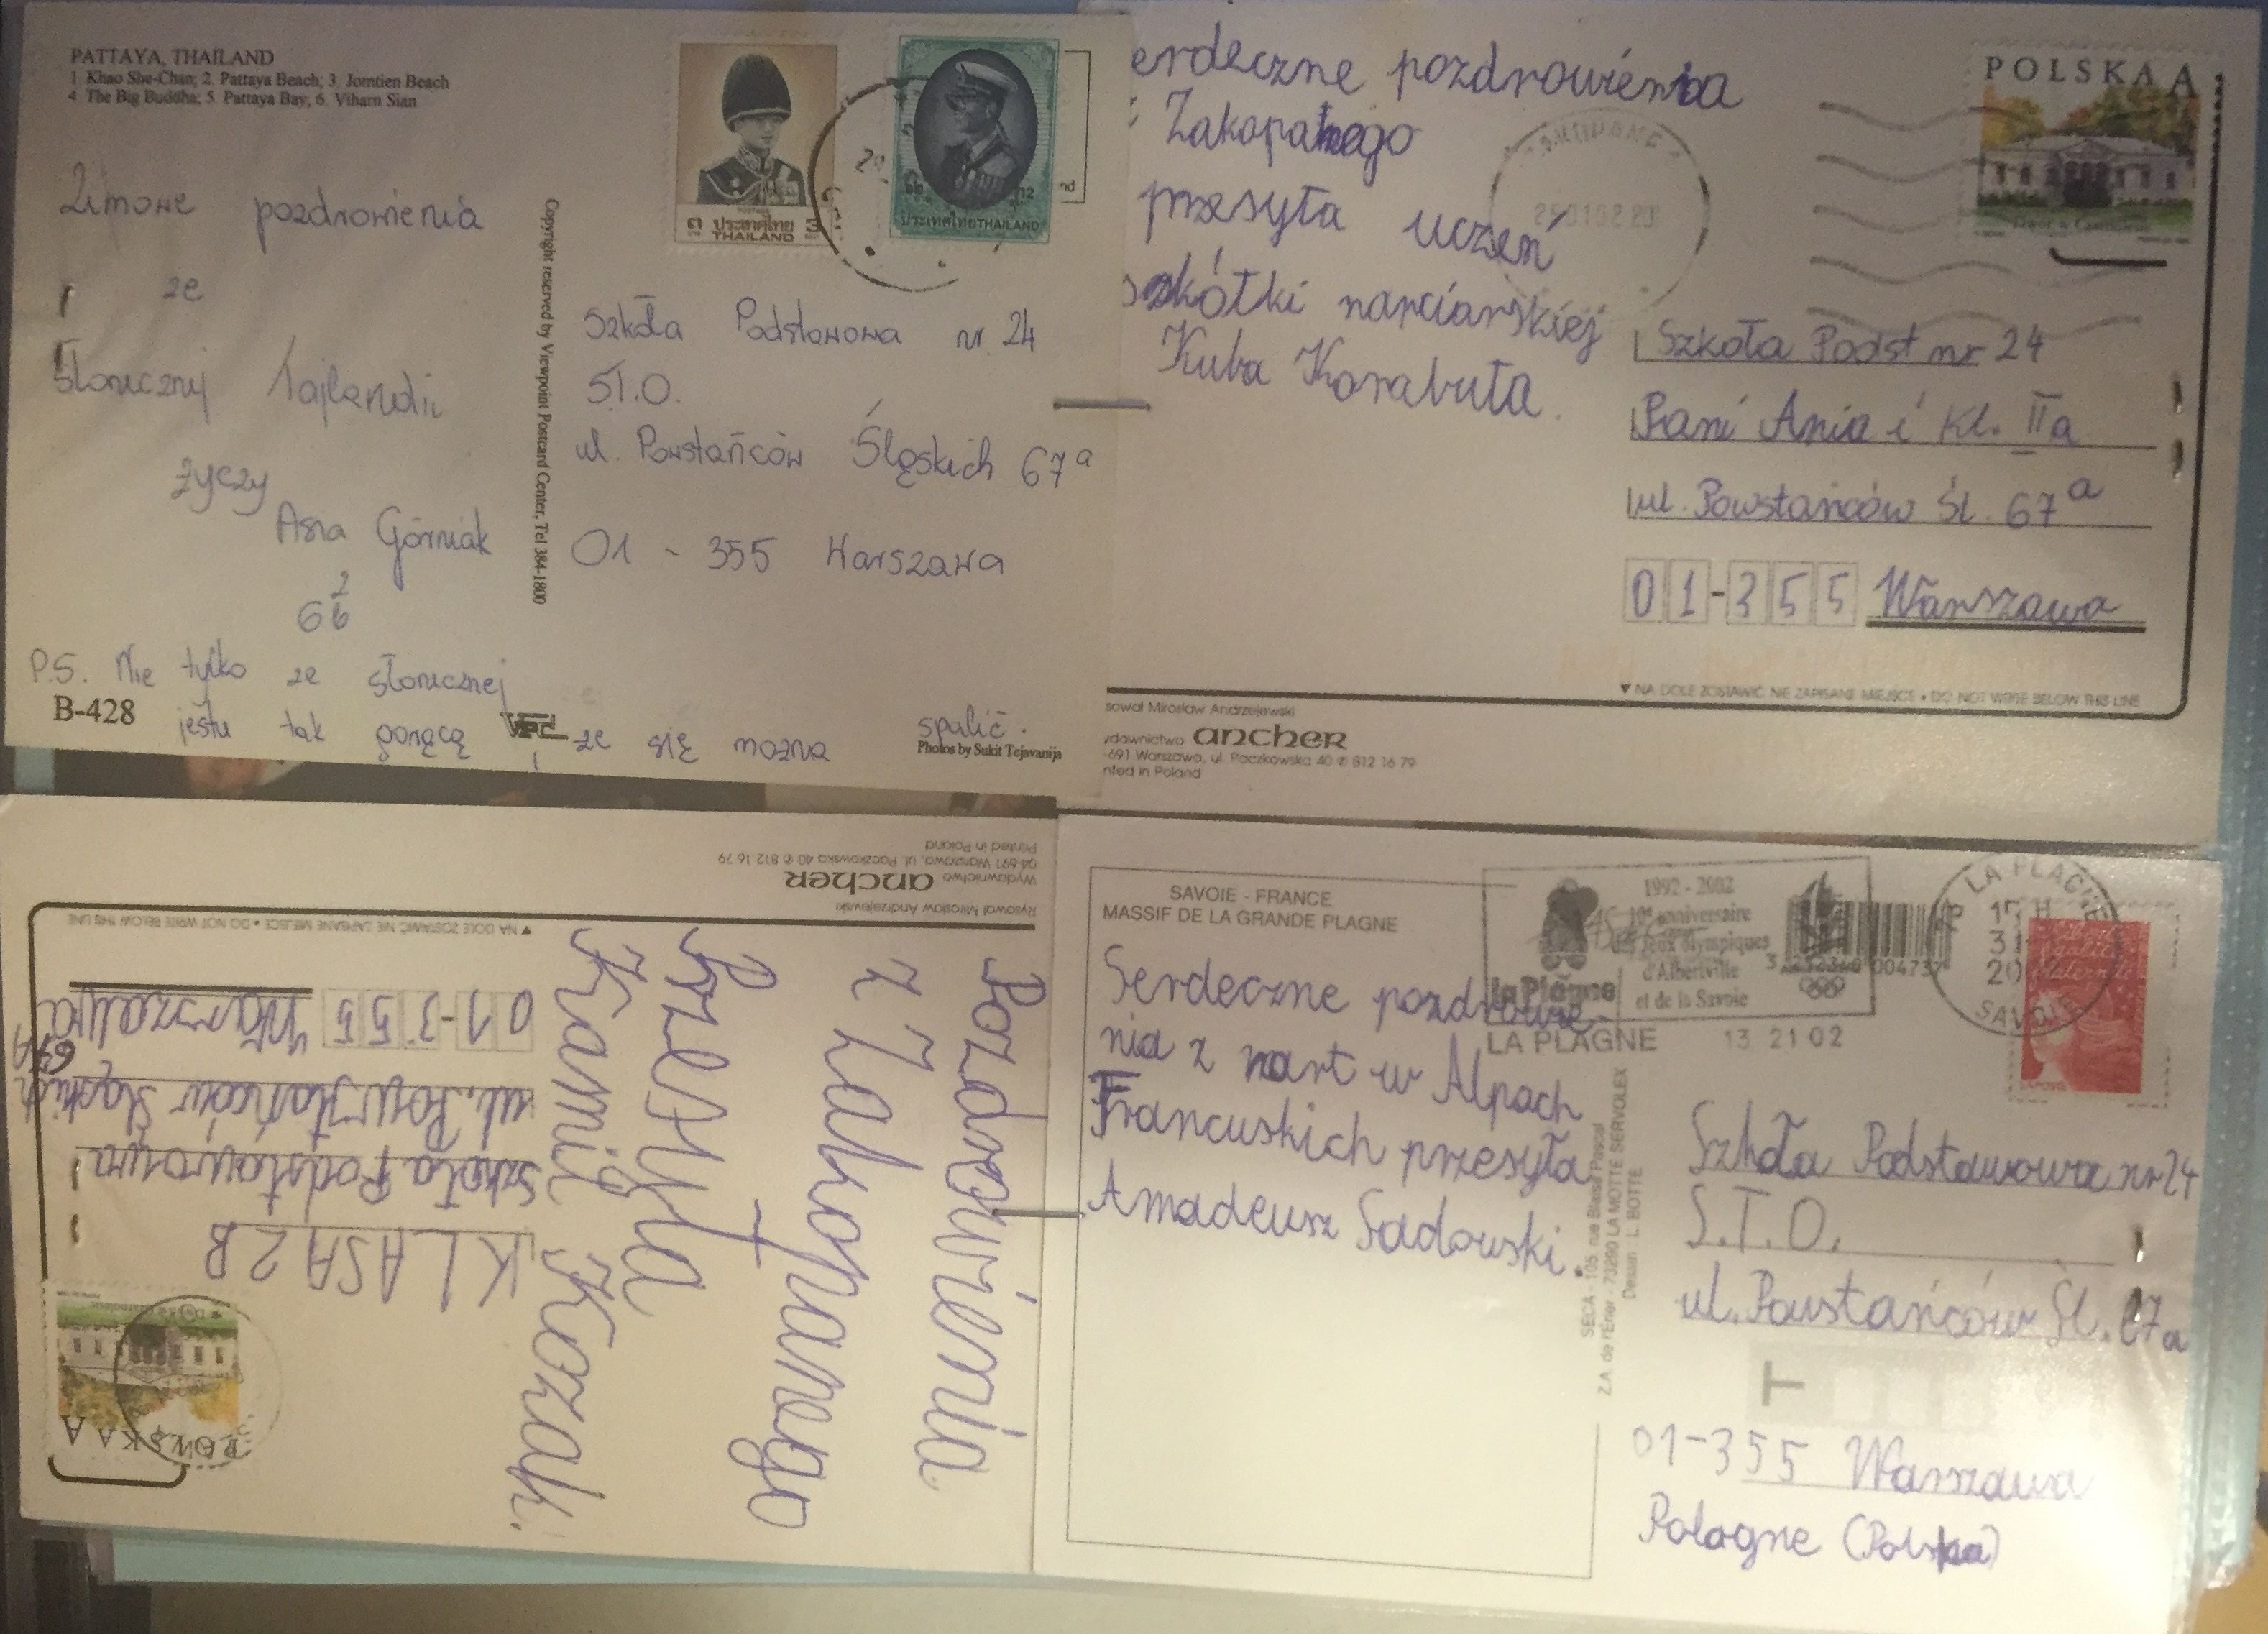 PATTAYA, THAILAND
1. Khao She-Chan; 2. Pattaya Beach; 3. Jomtien Beach
4. The Big Buddha; 5. Pattaya Bay; 6. Viharn Sian
Zimowe pozdrowienia
ze
Słonecznej Tajlandii
życzy
Asia Górniak
P.S. Nie tylko ze słonecznej
B-428
jestu tak gorąco że się można spalić.
Photos by Sukit Tejavanija
Copyright reserved by Viewpoint Postcard Center, Tel 384-1800
ประเทศไทย
THAILAND
ประเทศไทย THAILAND
Szkoła Podstawowa nr. 24
S.T.O.
ul. Powstańców Śląskich 67a
01 - 355 Warszawa
erdeczne pozdrowienia
z Zakopanego
przesyła uczeń
szkółki narciarskiej
Kuba Korabuta.
POLSKA A
Szkoła Podst nr 24
Pani Ania i Kl. IIa
ul. Powstańców Śl. 67a
01-355 Warszawa
▼ NA DOLE ZOSTAWIĆ NIE ZAPISANE MIEJSCE • DO NOT WRITE BELOW THIS LINE
sował Mirosław Andrzejewski
ydawnictwo ancher
-691 Warszawa, ul. Paczkowska 40 ✆ 812 16 79
nted in Poland
Pozdrowienia
z Zakopanego
Przesyła
Kamil Kozak.
POLSKA A
KLASA 2B
Szkoła Podstawowa
ul. Powstańców Śląskich 67A
01-355 Warszawa
▼ NA DOLE ZOSTAWIĆ NIE ZAPISANE MIEJSCE • DO NOT WRITE BELOW THIS LINE
Rysował Mirosław Andrzejewski
Wydawnictwo ancher
04-691 Warszawa, ul. Paczkowska 40 ✆ 812 16 79
Printed in Poland
SAVOIE - FRANCE
MASSIF DE LA GRANDE PLAGNE
Serdeczne pozdrowie-
nia z nart w Alpach
Francuskich przesyła
Amadeusz Sadowski.
1992 - 2002
10e anniversaire
des Jeux olympiques
d'Albertville
et de la Savoie
la Plagne
LA PLAGNE 13 21 02
3 212340 004737
LA PLAGNE
SAVOIE
SECA - 105, rue Blaise Pascal
Z.A. de l'Erier - 73290 LA MOTTE SERVOLEX
Dessin : L. BOTTE
Szkoła Podstawowa nr 24
S.T.O.
ul. Powstańców Śl. 67a
T
01-355 Warszawa
Pologne (Polska)